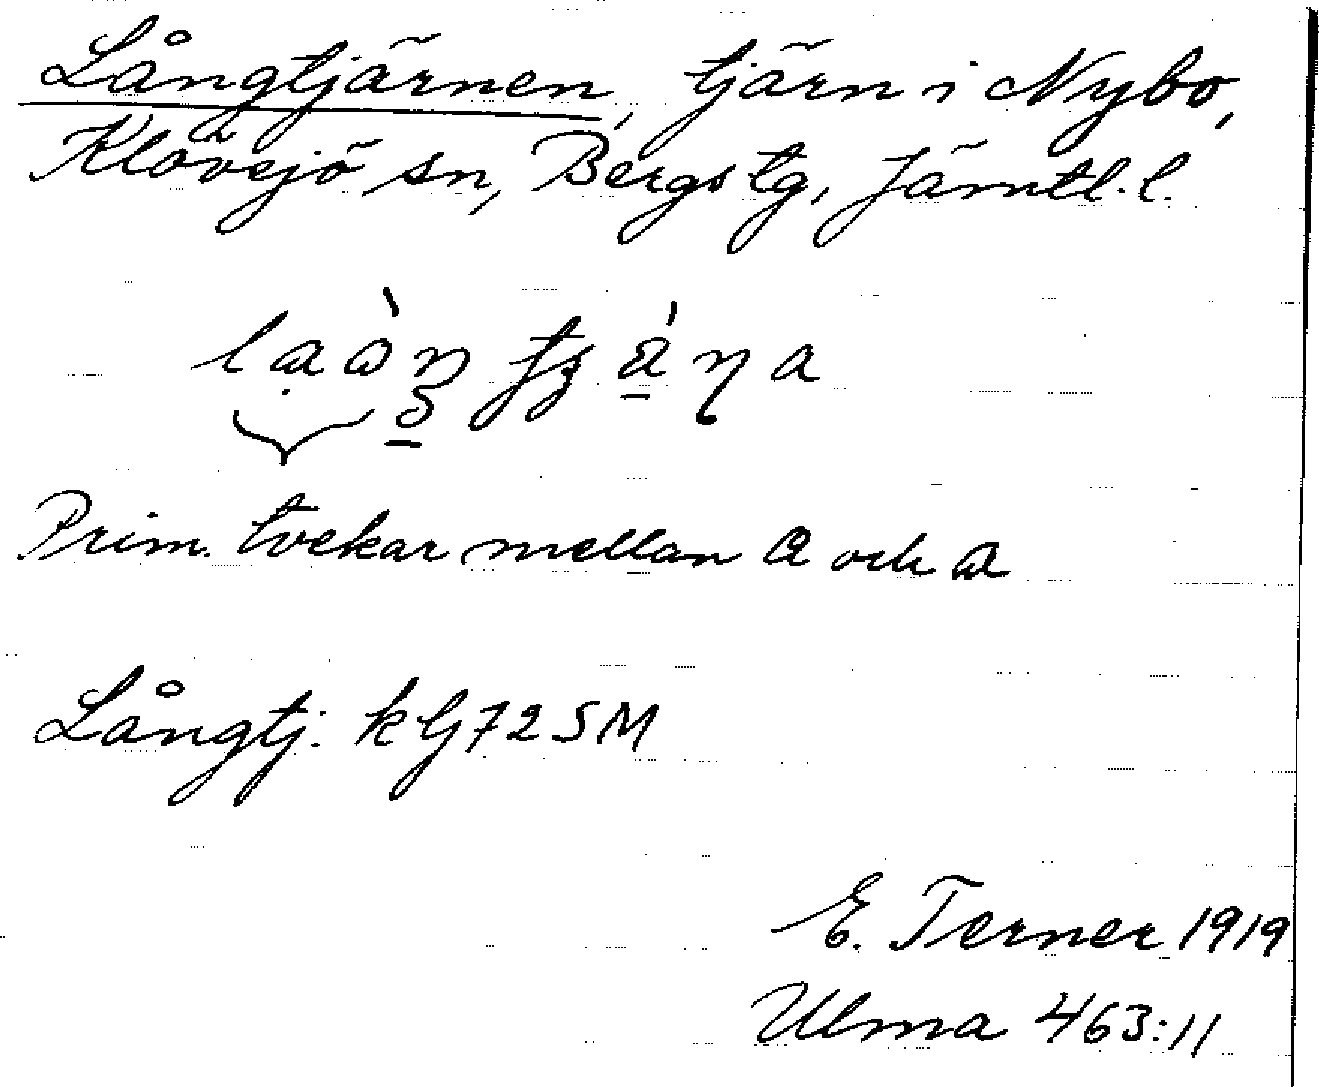 Långtjärnen, tjärn i Nybo,
Klövsjö sn, Bergs tg, Jämtl. l.
Prim. tvekar mellan a och
Långtj. k Gj72 SM
E. Terner 1919
Ulma 463:11